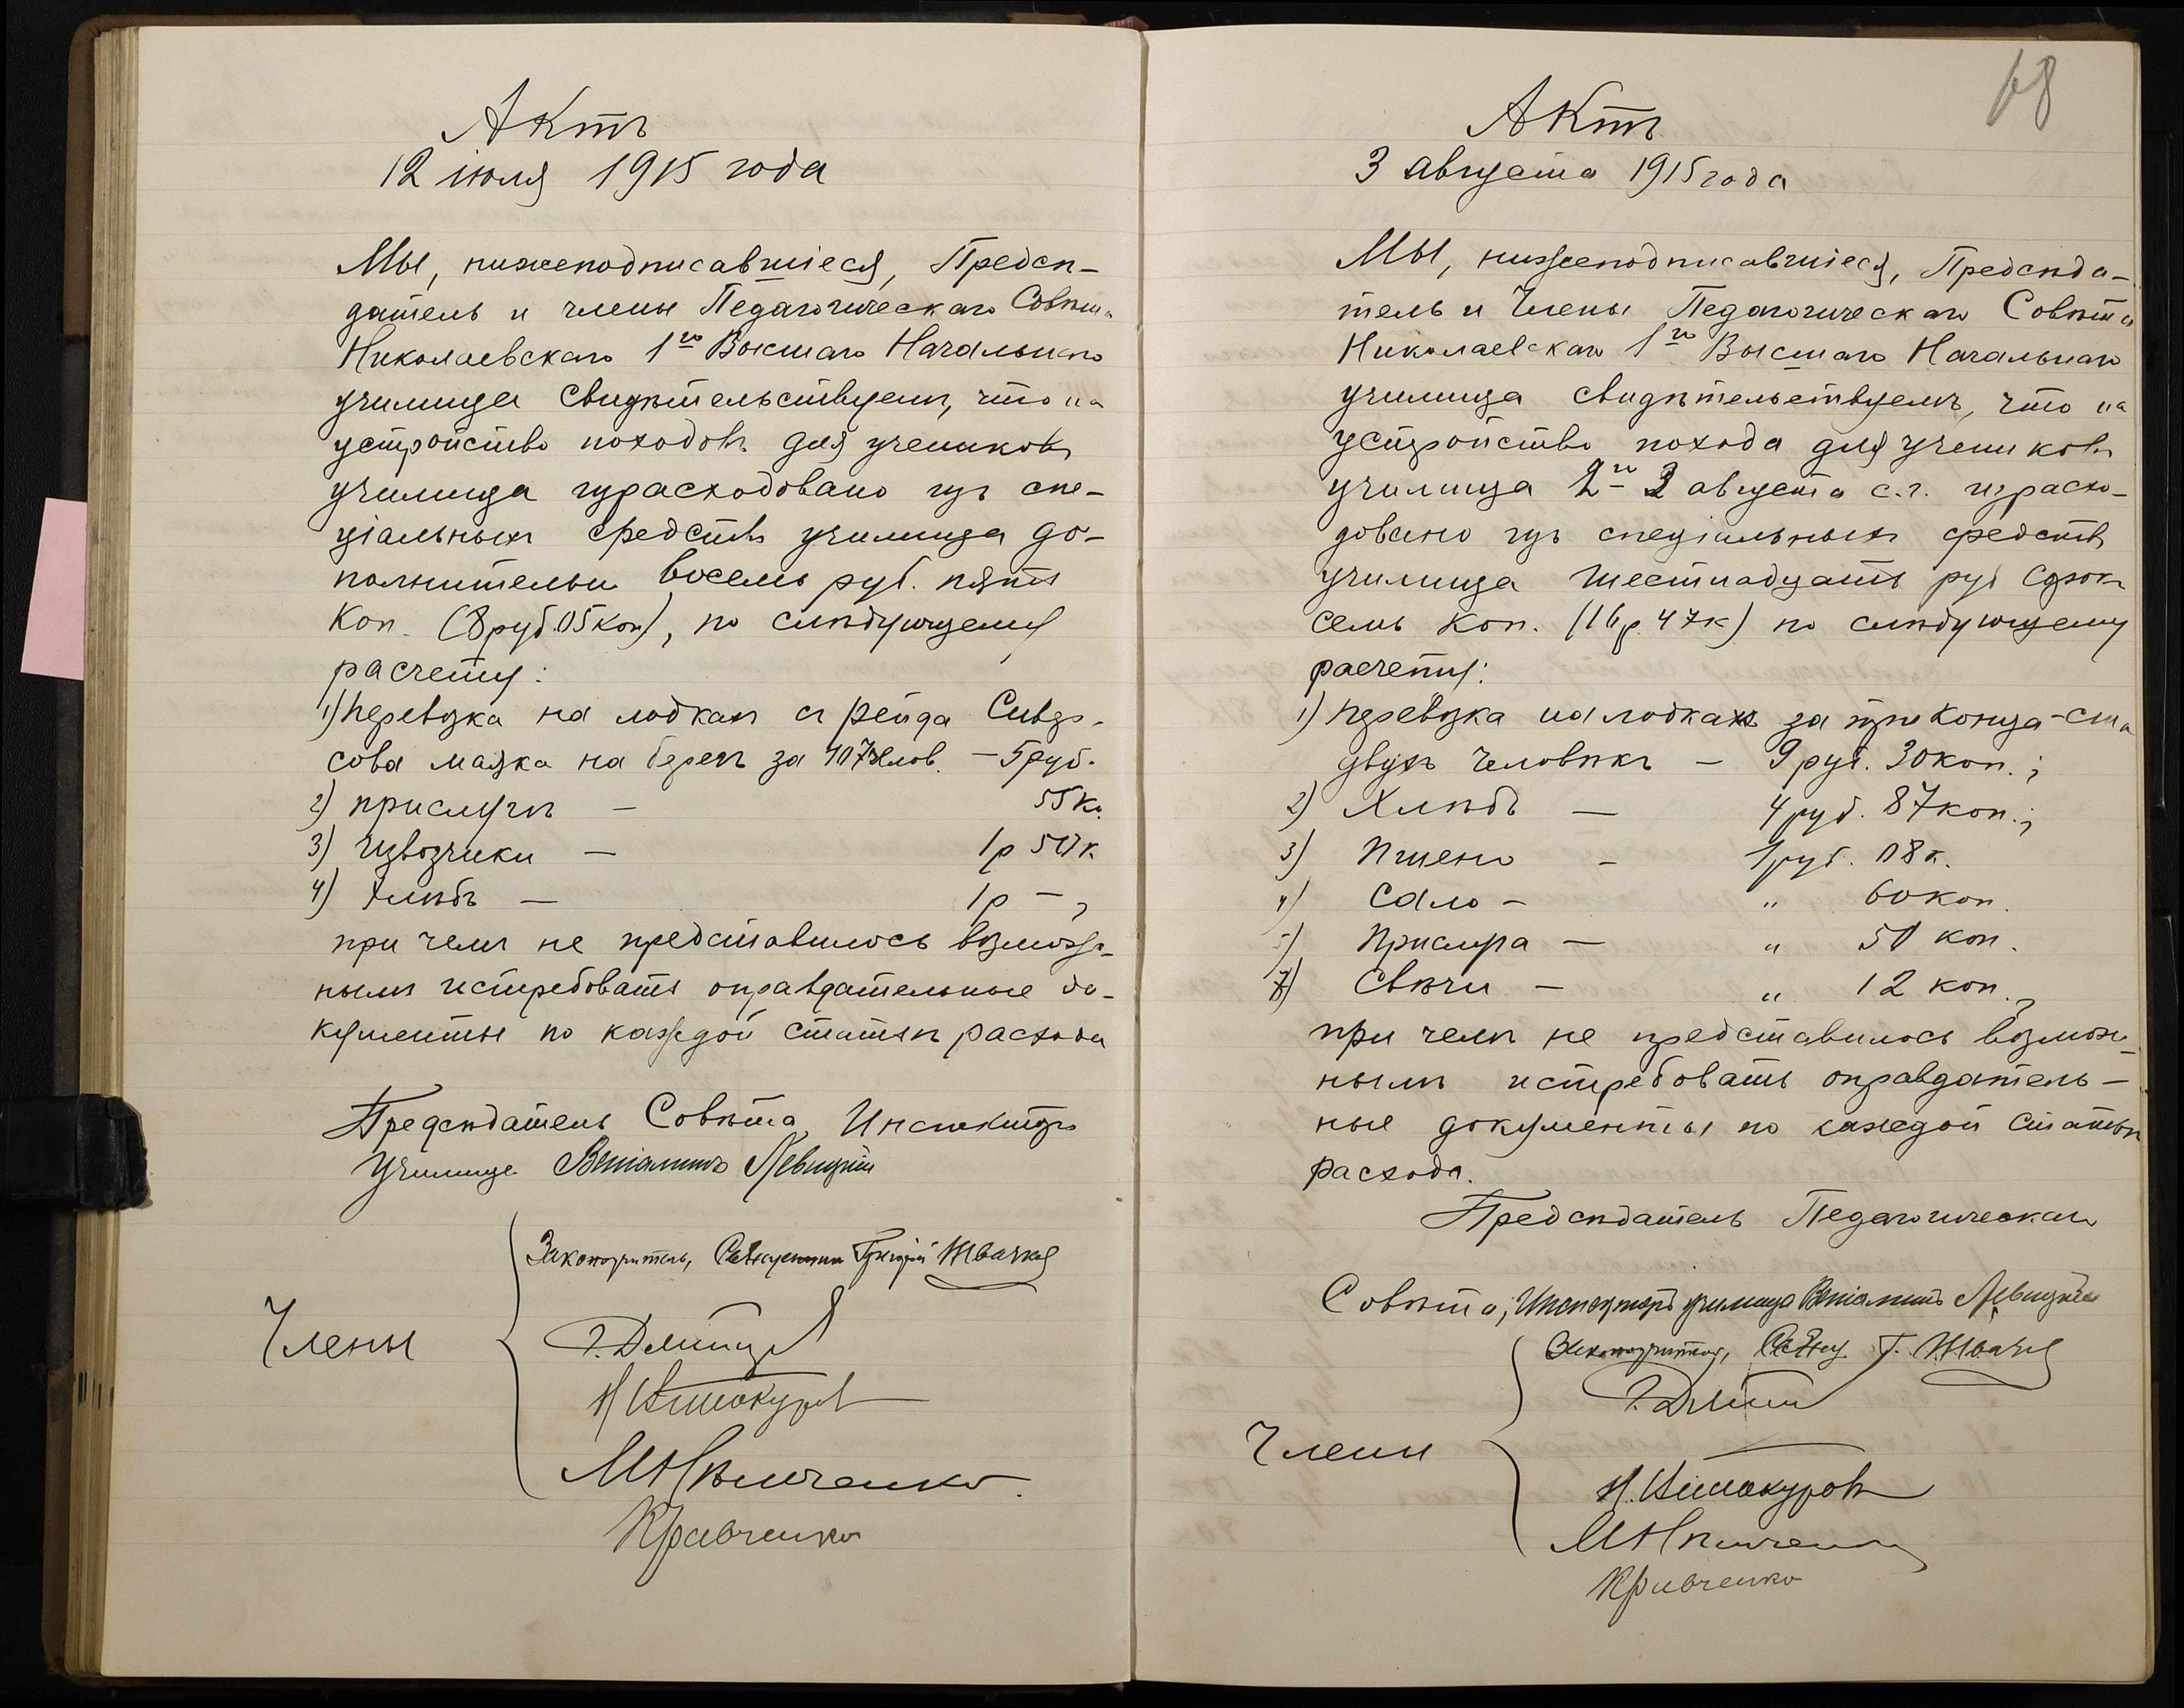 Актъ
12 іюля 1915 года
Мы, нижеподписавшіеся, Предсѣ-
датель и члены Педагогическаго Совѣта
Николаевскаго 1го Высшаго Начальнаго
училища свидѣтельствуемъ, что на
устройство походовъ для учениковъ
училища израсходовано изъ спе-
ціальныхъ средствъ училища до-
полнительно восемь руб. пять
коп. (8 руб. 05 коп), по слѣдующему
расчету:
1) перевозка на лодкахъ съ рейда
сова маяка на берегъ за 107 человѣк. – 5 руб.
2) прислугѣ – 55 к.
3) извозчики – 1 р 50 к.
4) хлѣбъ – 1 р – ,
при чемъ не представилось возмож-
нымъ истребовать оправдательные до-
кументы по каждой статьѣ расхода
Предсѣдатель Совѣта, Инспекторъ
Училища Веніаминъ Левицкій
Члены
Законоучитель, Священникъ Григорій Жвачка
М Нѣмченко.
Кравченко
68
Актъ
3 августа 1915 года
Мы, нижеподписавшіеся, Предсѣда-
тель и Члены Педагогическаго Совѣта
Николаевскаго 1го Высшаго Начальнаго
училища свидѣтельствуемъ, что на
устройство похода для учениковъ
училища 2го 3 августа с.г. израсхо-
довано изъ спеціальныхъ средствъ
училища шестнадцать руб сорок
семь коп. (16 р. 47 к) по слѣдующему
расчету:
1) перевозка на лодкахъ за три конца ста
двухъ человѣкъ – 9 руб. 30 коп.;
2) Хлѣбъ – 4 руб. 87 коп.;
3) Пшено – 1 руб. 08 к.
4) Сало – " 60 коп.
5) Прислуга – " 50 коп.
7) Свѣчи – " 12 коп.,
при чемъ не представилось возмож-
нымъ истребовать оправдатель-
ные документы по каждой статьѣ
расхода.
Предсѣдатель Педагогическаго
Совѣта, Инспекторъ училища Веніаминъ Левицкій
Законоучитель, Свящ. Г. Жвачка
Члены
М Нѣмченко
Кравченко